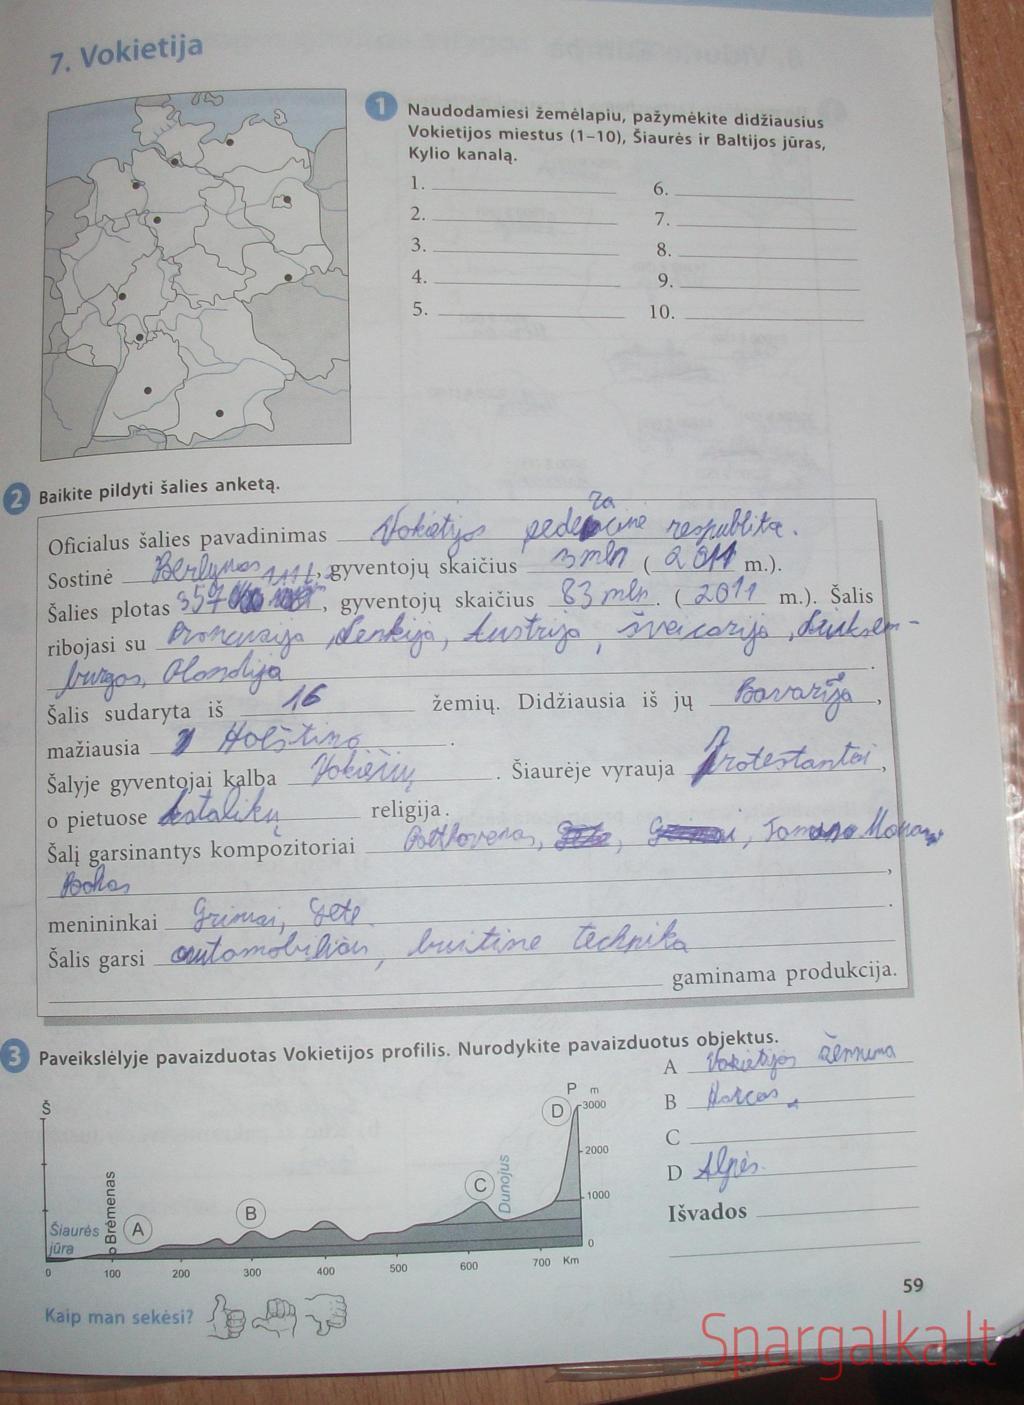 7. Vokietija
1 Naudodamiesi žemėlapiu, pažymėkite didžiausius
Vokietijos miestus (1–10), Šiaurės ir Baltijos jūras,
Kylio kanalą.
1. 6.
2. 7.
3. 8.
4. 9.
5. 10.
2 Baikite pildyti šalies anketą.
Oficialus šalies pavadinimas Vokietijos respublika.
Sostinė Berlynas, gyventojų skaičius 3 mln (2011 m.).
Šalies plotas 357, gyventojų skaičius 83 mln. (2011 m.). Šalis
ribojasi su Prancuzija, Lenkija, Austrija, šveicarija, Liuksem-
burgas, Olandija.
Šalis sudaryta iš 16 žemių. Didžiausia iš jų Bavarija,
mažiausia Holštino.
Šalyje gyventojai kalba Vokiečių. Šiaurėje vyrauja Protestantai,
o pietuose katalikų religija.
Šalį garsinantys kompozitoriai Bethovenas,
Bachas,
menininkai Grimai, Gete.
Šalis garsi automobiliais, buitine technika
gaminama produkcija.
3 Paveikslėlyje pavaizduotas Vokietijos profilis. Nurodykite pavaizduotus objektus.
A Vokietijos žemuma
B Harcas
C
D Alpės.
Išvados
Š
P m
3000
2000
1000
0
Šiaurės
jūra
Brėmenas
A
B
C
Dunojus
D
0 100 200 300 400 500 600 700 Km
59
Kaip man sekėsi?
Spargalka.lt